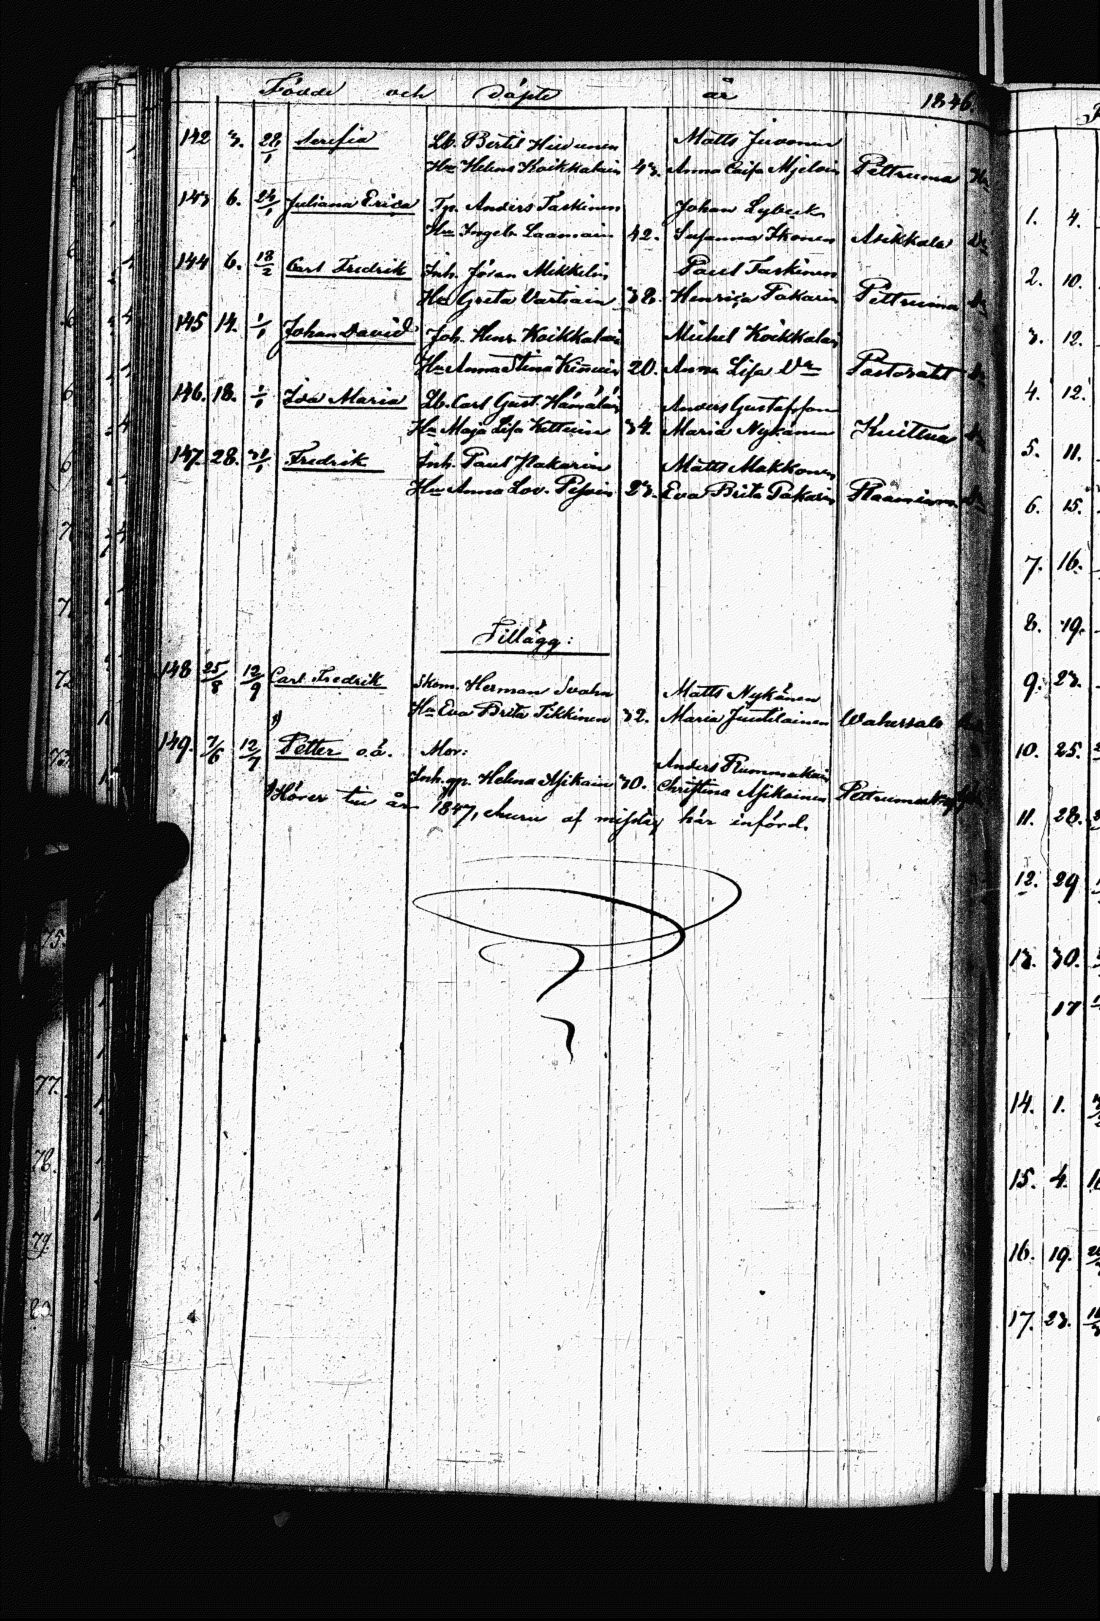 Födde och döpte år 1846.
142 3. 28/1 Serefia Lb. Bertil Hirvonen Matts Juvonen
Hu Helena Koikkalain 43. Anna Caisa Mjeloin Pettruma
143 6. 24/1 Juliana Erica Tp. Anders Taskinen Johan Lybeck
Hu Ingeb. Laamain 42. Susanna Ikonen Asikkala Dn
144 6. 18/2 Carl Fredrik Inh. Jöran Mikkilin Paul Taskinen
Hu Greta Vartiain 38. Henrica Pakarin Pettruma Dn
145 14. 1/1 Johan David Joh. Henr. Koikkalain Michel Koikkalain
Hu Anna Stina 20. Anna Lisa Dn Pastoratet Dn
146. 18. 1/1 Ida Maria Lb. Carl Gust. Hämäläin Anders Gustafsson
Hu Maja Lisa Kettuin 34. Maria Nykänen Kuittua Dn
147. 28. 31/1 Fredrik Inh. Paul Pakarin Matts Makkonen
Hu Anna Lov. 23. Eva Brita Pakarin Dn
Tillägg:
148 25/8 12/9 Carl Fredrik Skom. Herman Svahn Matts Nykänen
Hu Eva Brita Tikkinen 32. Maria Juutilainen Wahersalo
149. 7/6 12/7 Petter o.ä. Mor: Anders Rummukain
Inh. Helena Asikain 30. Christina Asikainen
Hörer till år 1847, ehuru af misstag här införd.
1. 4.
2. 10.
3. 12.
4. 12.
5. 11.
6. 15.
7. 16.
8. 19.
9. 23.
10. 25.
11. 28.
12. 29
13. 30.
17
14. 1.
15. 4.
16. 19.
17. 23.